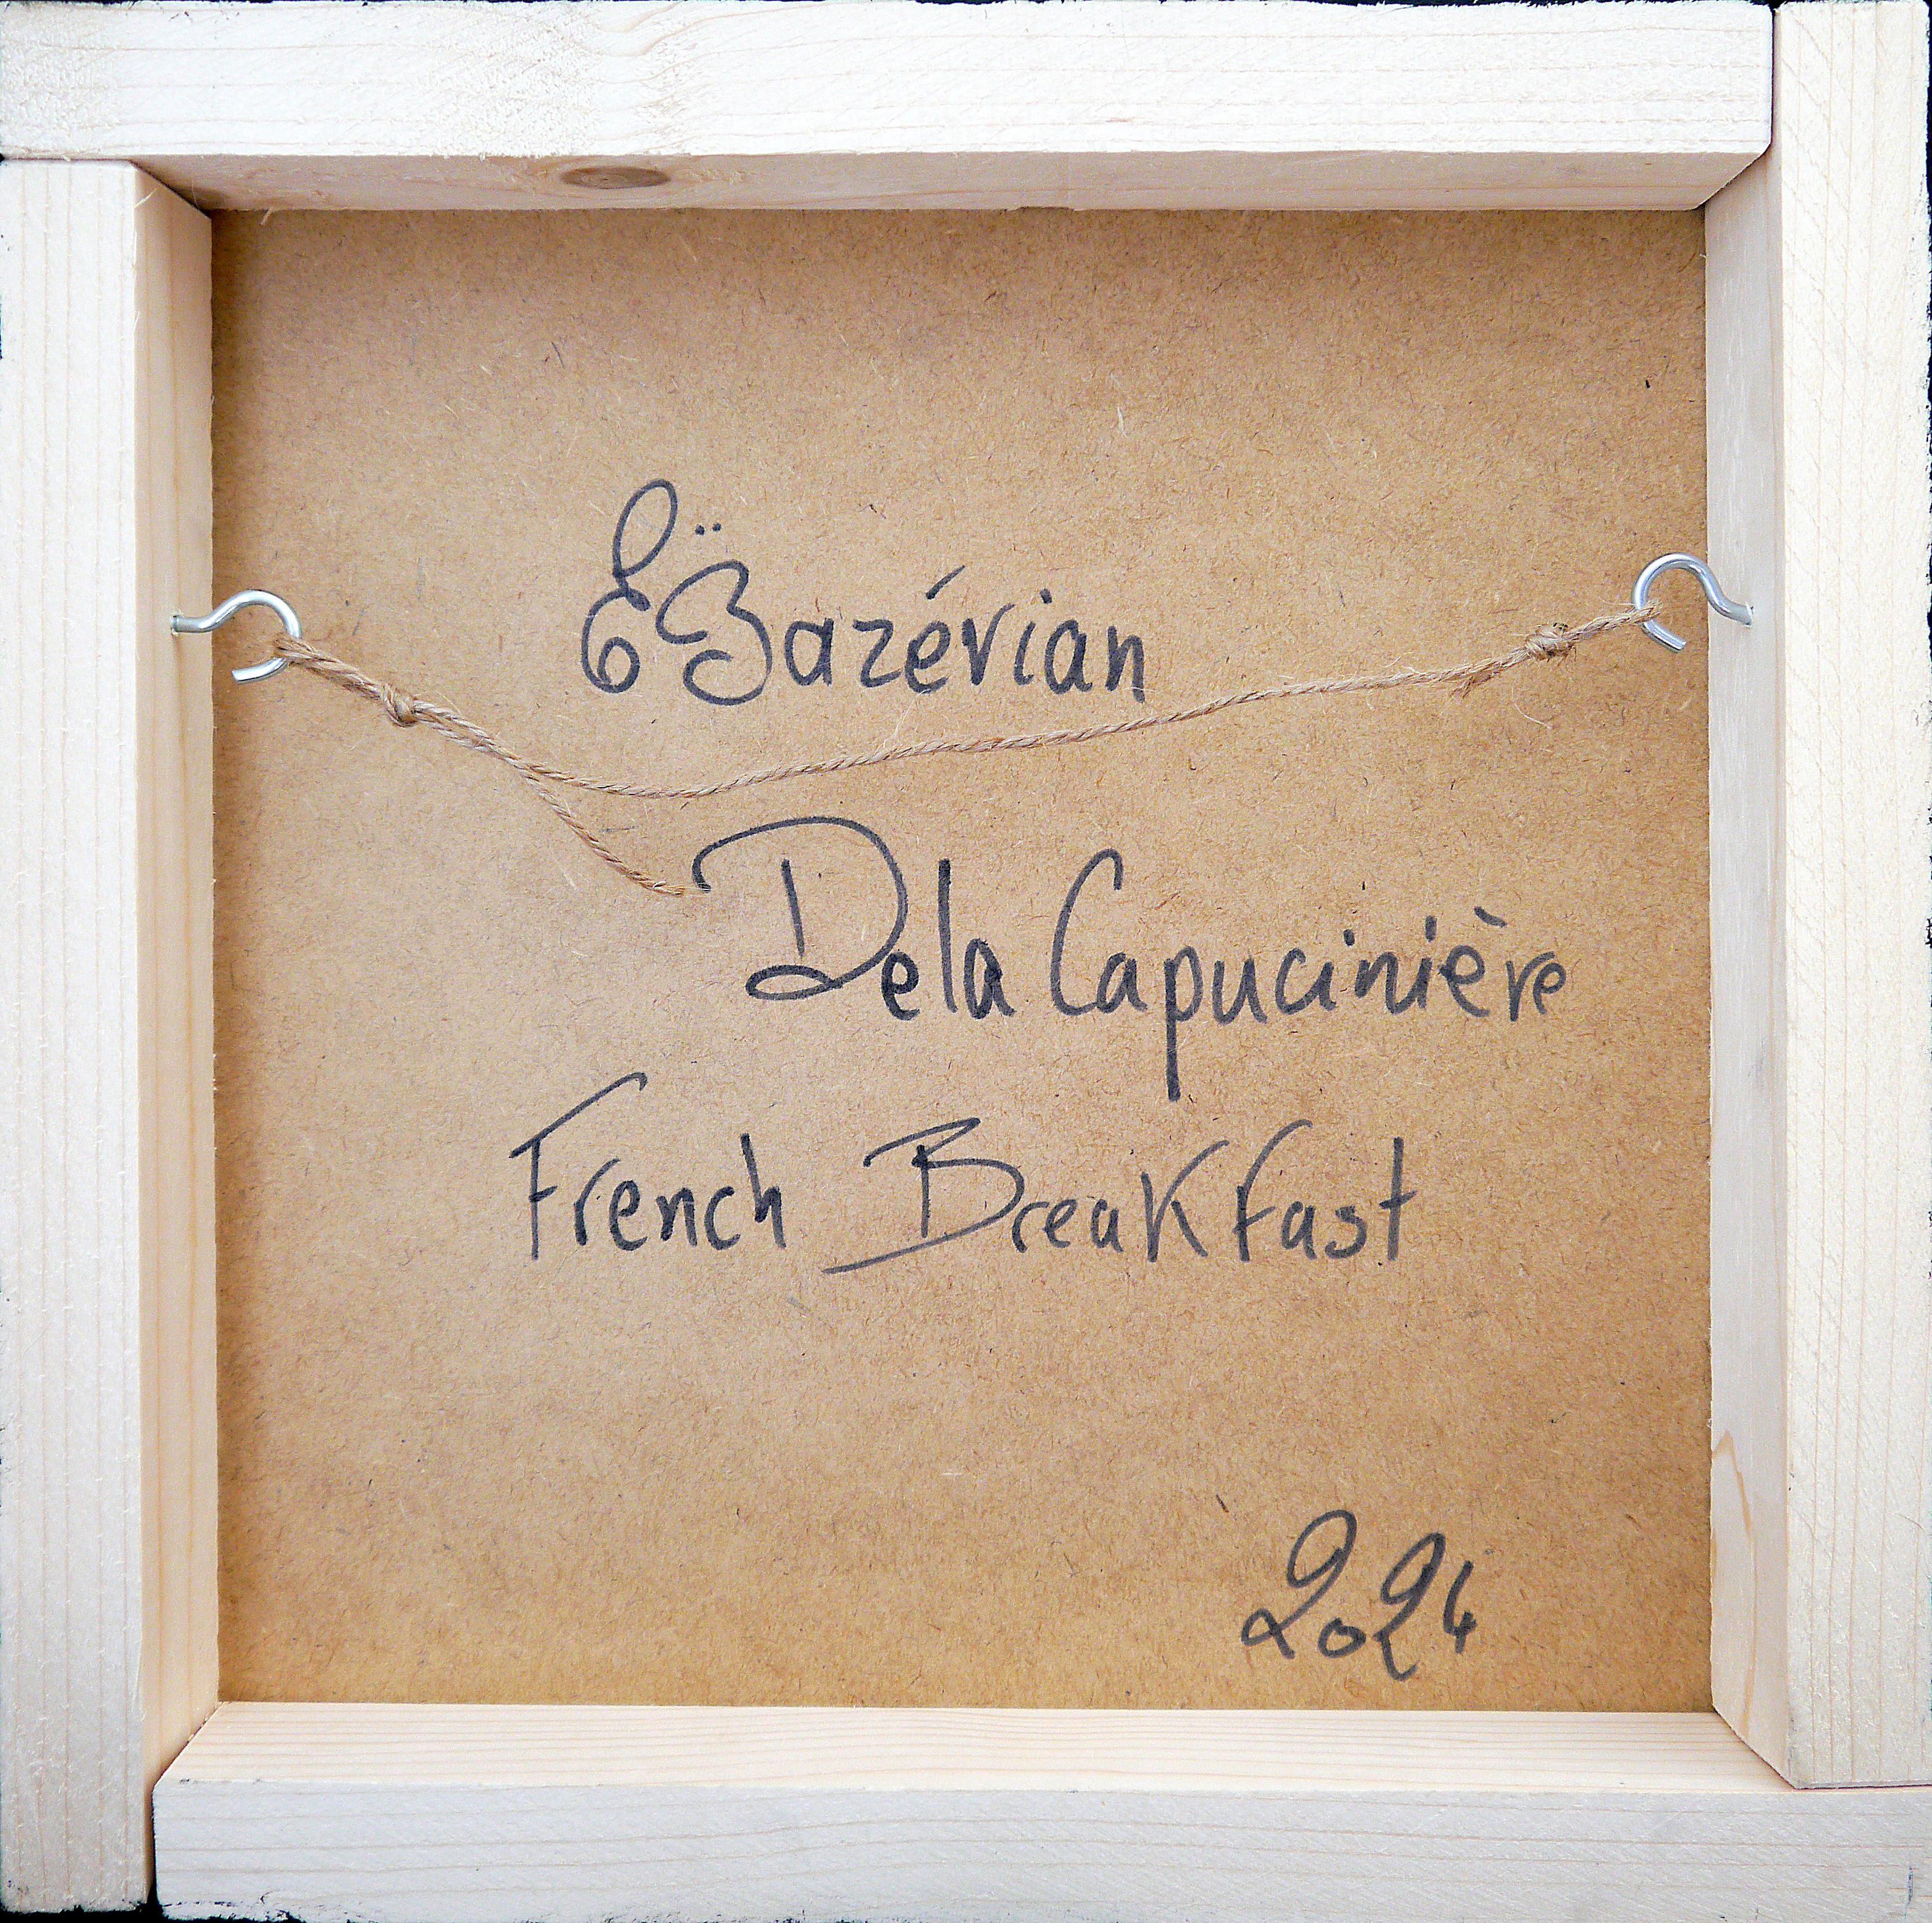 Ë Bazévian
De la Capucinière
French Breakfast
2024